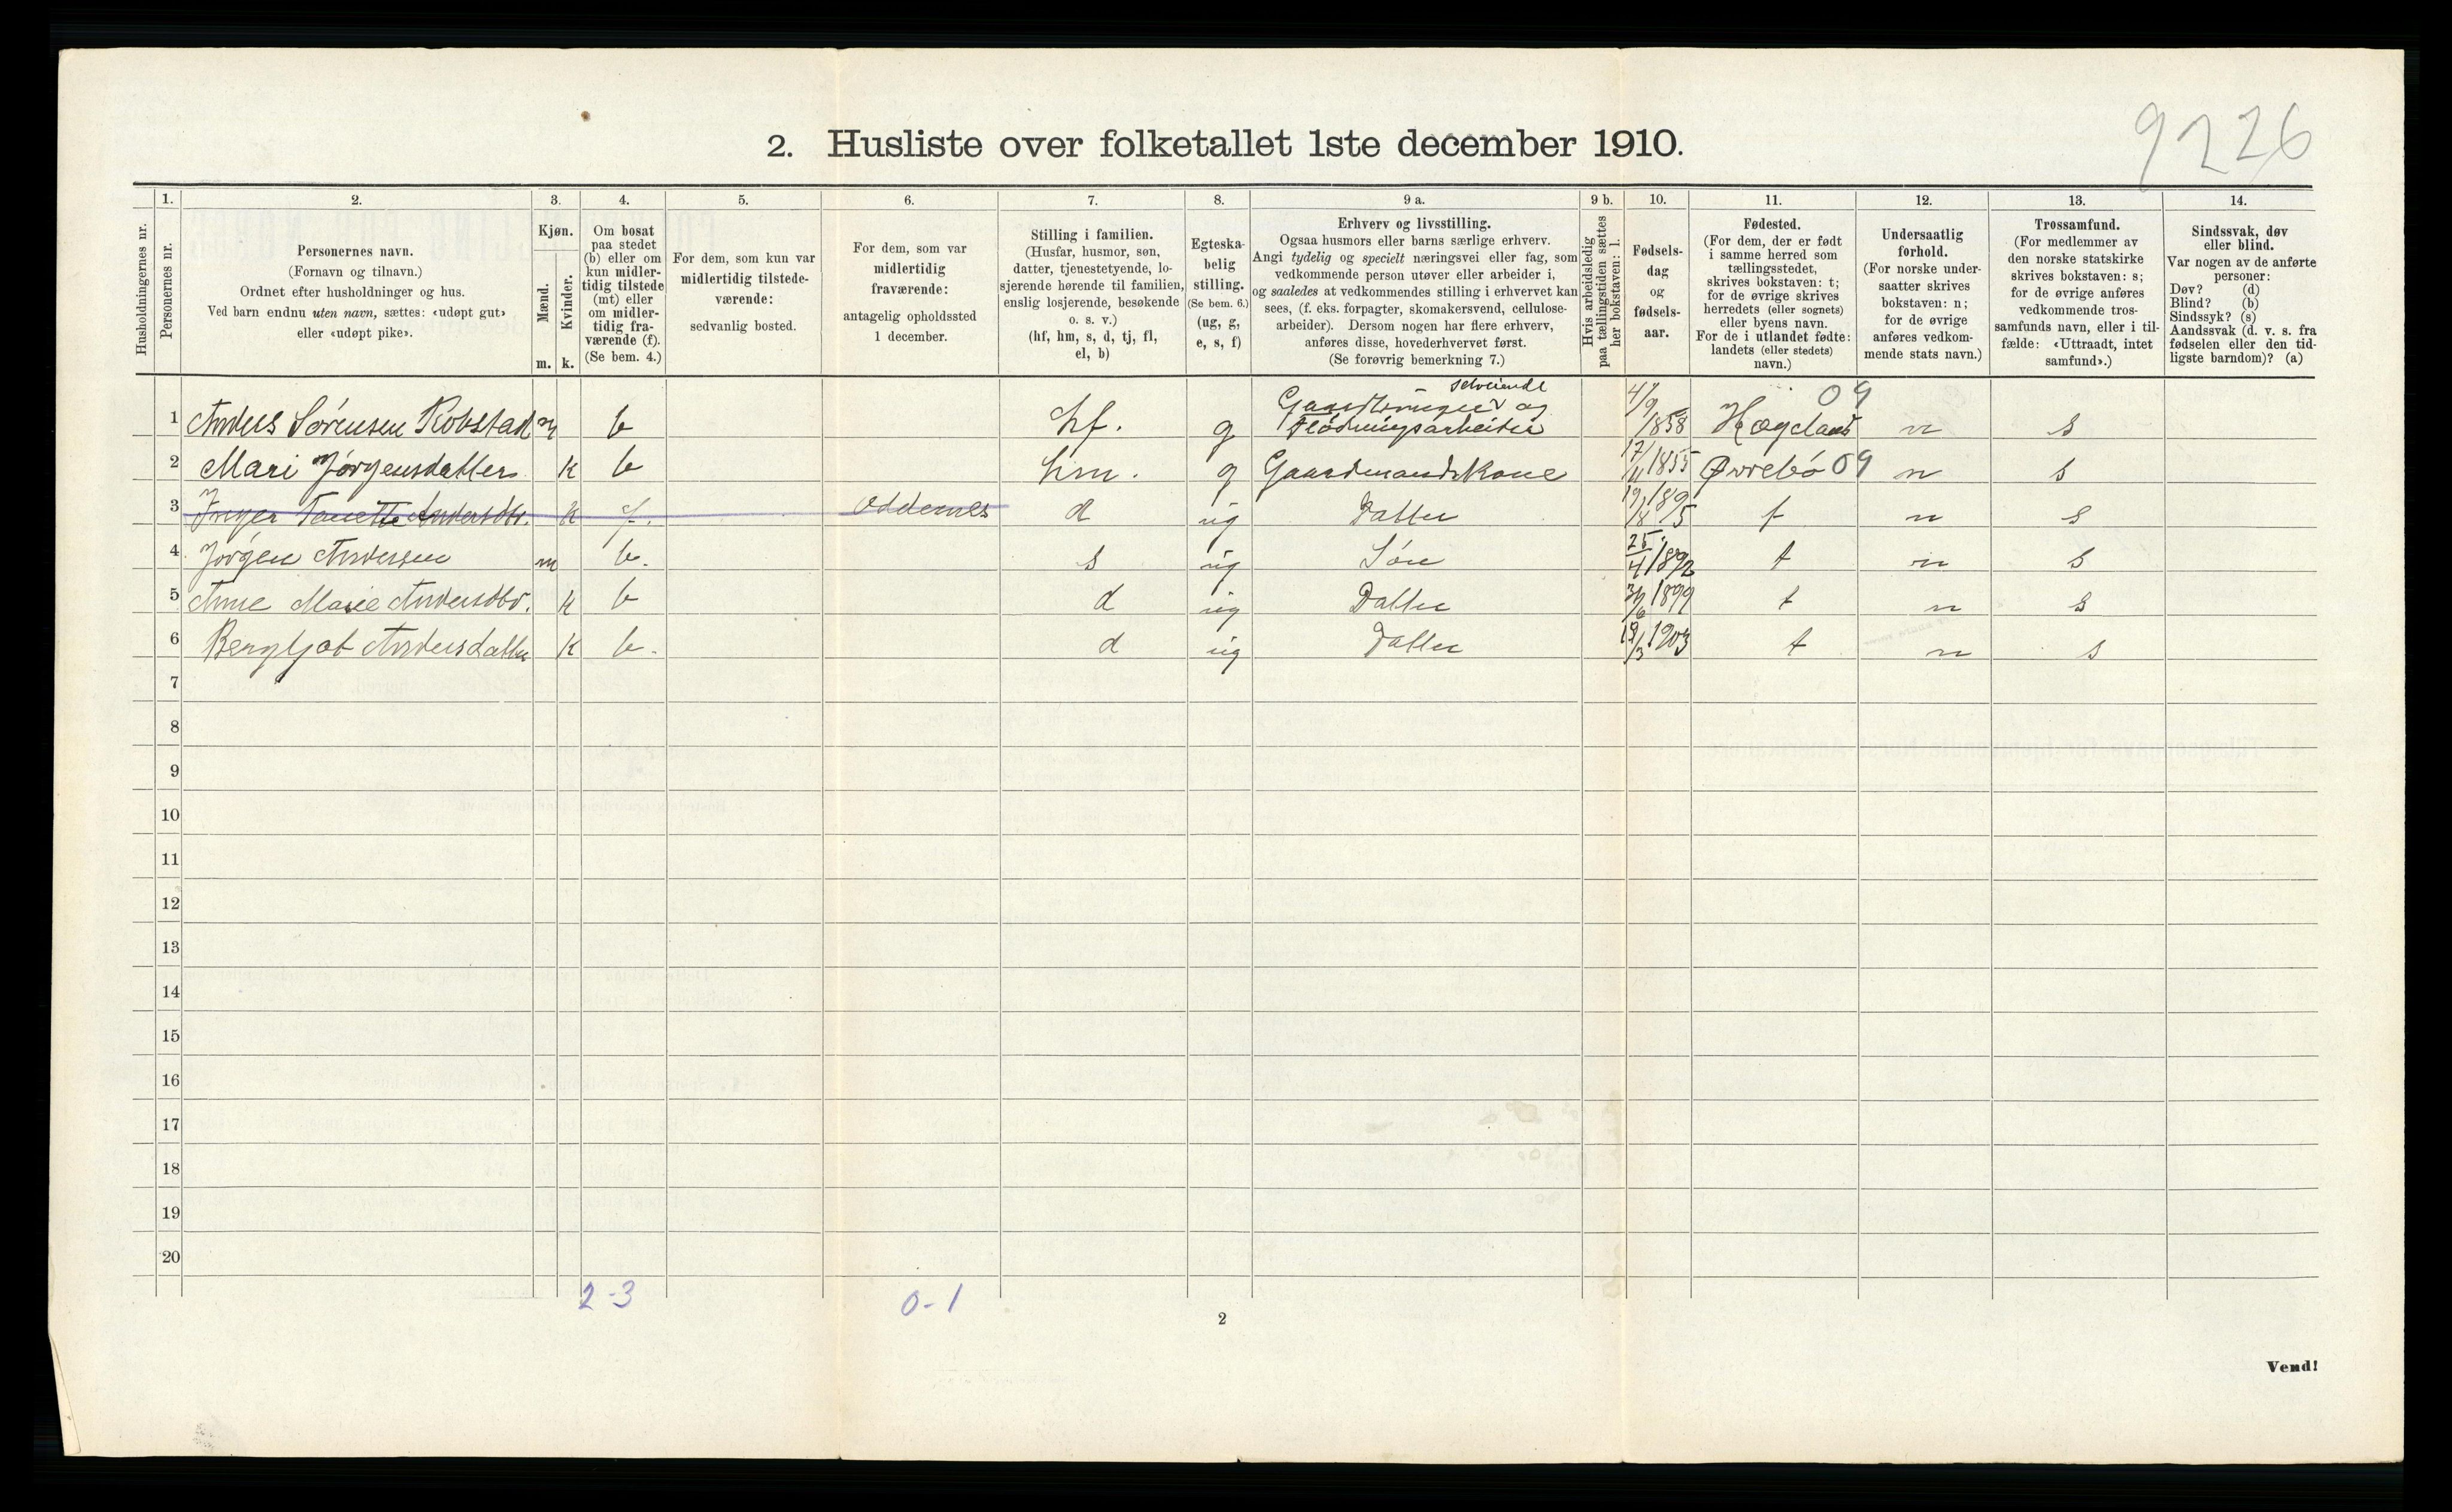 9226
2. Husliste over folketallet 1ste december 1910.
Husholdningernes nr.
1.
Personernes nr.
2.
Personernes navn.
(Fornavn og tilnavn.)
Ordnet efter husholdninger og hus.
Ved barn endnu uten navn, sættes: «udøpt gut»
eller «udøpt pike».
3.
Kjøn.
Mænd.
Kvinder.
m. k.
4.
Om bosat
paa stedet
(b) eller om
kun midler-
tidig tilstede
(mt) eller
om midler-
tidig fra-
værende (f).
(Se bem. 4.)
5.
For dem, som kun var
midlertidig tilstede-
værende:
sedvanlig bosted.
6.
For dem, som var
midlertidig
fraværende:
antagelig opholdssted
1 december.
7.
Stilling i familien.
(Husfar, husmor, søn,
datter, tjenestetyende, lo-
sjerende hørende til familien,
enslig losjerende, besøkende
o. s. v.)
(hf, hm, s, d, tj, fl,
el, b)
8.
Egteska-
belig
stilling.
(Se bem. 6.)
(ug, g,
e, s, f)
9 a.
Erhverv og livsstilling.
Ogsaa husmors eller barns særlige erhverv.
Angi tydelig og specielt næringsvei eller fag, som
vedkommende person utøver eller arbeider i,
og saaledes at vedkommendes stilling i erhvervet kan
sees, (f. eks. forpagter, skomakersvend, cellulose-
arbeider). Dersom nogen har flere erhverv,
anføres disse, hovederhvervet først.
(Se forøvrig bemerkning 7.)
9 b.
Hvis arbeidsledig
paa tællingstiden sættes
her bokstaven: l.
10.
Fødsels-
dag
og
fødsels-
aar.
11.
Fødested.
(For dem, der er født
i samme herred som
tællingsstedet,
skrives bokstaven: t;
for de øvrige skrives
herredets (eller sognets)
eller byens navn.
For de i utlandet fødte:
landets (eller stedets)
navn.)
12.
Undersaatlig
forhold.
(For norske under-
saatter skrives
bokstaven: n;
for de øvrige
anføres vedkom-
mende stats navn.)
13.
Trossamfund.
(For medlemmer av
den norske statskirke
skrives bokstaven: s;
for de øvrige anføres
vedkommende tros-
samfunds navn, eller i til-
fælde: «Uttraadt, intet
samfund».)
14.
Sindssvak, døv
eller blind.
Var nogen av de anførte
personer:
Døv? (d)
Blind? (b)
Sindssyk? (s)
Aandssvak (d. v. s. fra
fødselen eller den tid-
ligste barndom)? (a)
selveiende 09
1 Anders Sörensen Robstad m b hf. g Gaardbruger og Flödningsarbeider 4/9 1858 Hægeland n s
2 Mari Jörgensdatter k b hm. g Gaardmandskone 17/11 1855 Øvrebö 09 n s
3 Inger Tanette Andersdtr. k f. Oddernes d ug Datter 1895 t n s
4 Jörgen Andersen m b. s ug Sön 25/4 1892 t n s
5 Anne Marie Andersdtr. k b d ug Datter 1899 t n s
6 Bergljot Andersdatter k b. d ug Datter 1903 t n s
7
8
9
10
11
12
13
14
15
16
17
18
19
20
2-3 0-1
2
Vend!